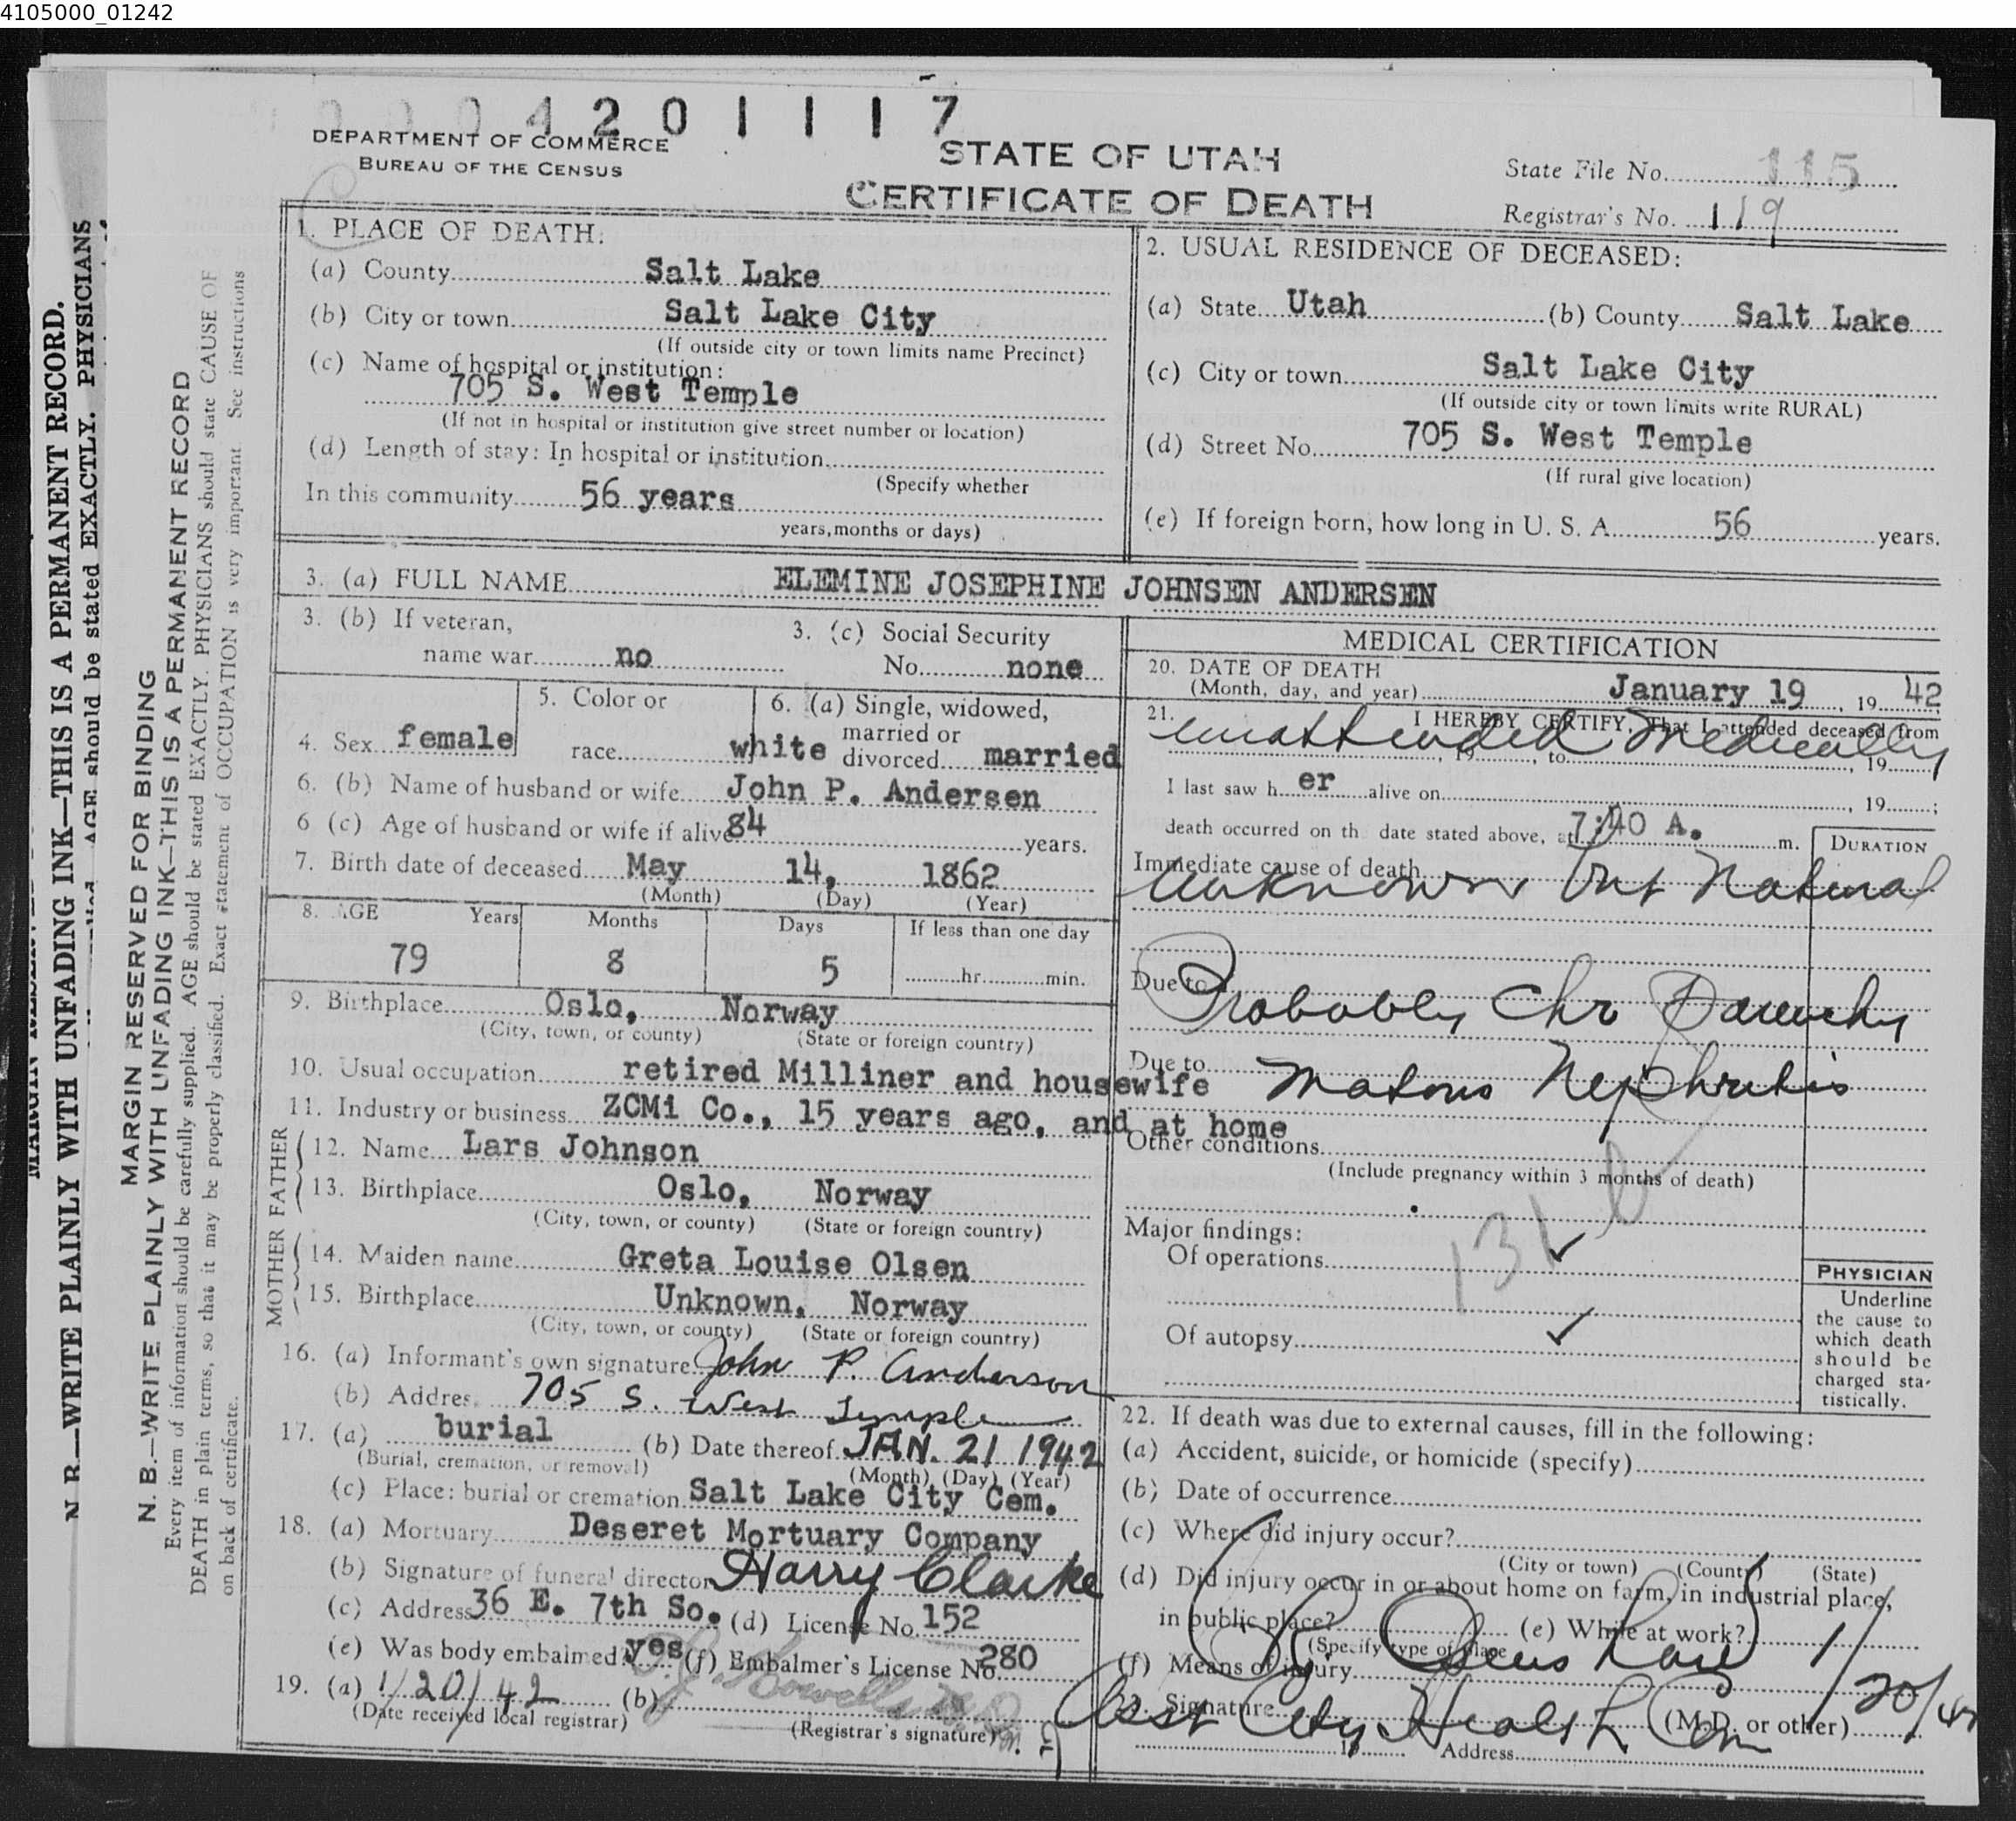 4105000_01242
4 2 0 1 1 1 7
DEPARTMENT OF COMMERCE
BUREAU OF THE CENSUS
STATE OF UTAH
CERTIFICATE OF DEATH
State File No. 115
Registrar's No. 119
MARGIN RESERVED FOR BINDING
N. B.—WRITE PLAINLY WITH UNFADING INK—THIS IS A PERMANENT RECORD
Every item of information should be carefully supplied. AGE should be stated EXACTLY. PHYSICIANS should state CAUSE OF
DEATH in plain terms, so that it may be properly classified. Exact statement of OCCUPATION is very important. See instructions
on back of certificate.
N. B.—WRITE PLAINLY WITH UNFADING INK—THIS IS A PERMANENT RECORD.
AGE should be stated EXACTLY. PHYSICIANS
1. PLACE OF DEATH:
(a) County Salt Lake
(b) City or town Salt Lake City
(If outside city or town limits name Precinct)
(c) Name of hospital or institution:
705 S. West Temple
(If not in hospital or institution give street number or location)
(d) Length of stay: In hospital or institution
(Specify whether
In this community 56 years
years, months or days)
2. USUAL RESIDENCE OF DECEASED:
(a) State Utah (b) County Salt Lake
(c) City or town Salt Lake City
(If outside city or town limits write RURAL)
(d) Street No. 705 S. West Temple
(If rural give location)
(e) If foreign born, how long in U. S. A. 56 years.
3. (a) FULL NAME ELEMINE JOSEPHINE JOHNSEN ANDERSEN
3. (b) If veteran,
name war no
3. (c) Social Security
No. none
4. Sex female
5. Color or
race white
6. (a) Single, widowed,
married or
divorced married
6. (b) Name of husband or wife John P. Andersen
6 (c) Age of husband or wife if alive 84 years.
7. Birth date of deceased May 14, 1862
(Month) (Day) (Year)
8. AGE Years Months Days If less than one day
79 8 5 hr. min.
9. Birthplace Oslo, Norway
(City, town, or county) (State or foreign country)
10. Usual occupation retired Milliner and housewife
11. Industry or business ZCMi Co., 15 years ago, and at home
FATHER
12. Name Lars Johnson
13. Birthplace Oslo, Norway
(City, town, or county) (State or foreign country)
MOTHER
14. Maiden name Greta Louise Olsen
15. Birthplace Unknown, Norway
(City, town, or county) (State or foreign country)
16. (a) Informant's own signature John P. Anderson
(b) Addres. 705 S. West Temple
17. (a) burial (b) Date thereof JAN. 21 1942
(Burial, cremation, or removal) (Month) (Day) (Year)
(c) Place: burial or cremation Salt Lake City Cem.
18. (a) Mortuary Deseret Mortuary Company
(b) Signature of funeral director Harry Clarke
(c) Address 36 E. 7th So. (d) License No. 152
(e) Was body embalmed? yes (f) Embalmer's License No. 280
19. (a) 1/20/42 (b)
(Date received local registrar) (Registrar's signature)
MEDICAL CERTIFICATION
20. DATE OF DEATH
(Month, day, and year) January 19, 1942
21. I HEREBY CERTIFY, That I attended deceased from
unattended medically
, 19 , to , 19
I last saw h er alive on , 19 ;
death occurred on th date stated above, at 7:40 A. m.
DURATION
Immediate cause of death
Unknown but Natural
Due to
Probably Chr Parenchy
Due to
matous Nephritis
Other conditions
(Include pregnancy within 3 months of death)
131 b
Major findings:
Of operations ✓
Of autopsy ✓
PHYSICIAN
Underline
the cause to
which death
should be
charged sta-
tistically.
22. If death was due to external causes, fill in the following:
(a) Accident, suicide, or homicide (specify)
(b) Date of occurrence
(c) Where did injury occur?
(City or town) (County) (State)
(d) Did injury occur in or about home on farm, in industrial place,
in public place? (e) While at work?
(Specify type of place
(f) Means of injury
Signature (M.D. or other) 1/20/42
Asst City Health Com
Address